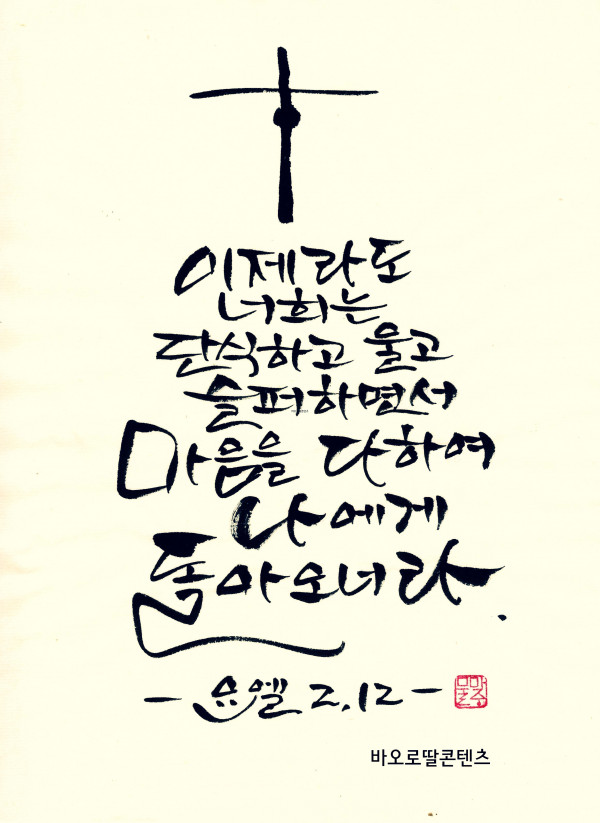 이제라도
너희는
단식하고 울고
슬퍼하면서
마음을 다하여
나에게
돌아오너라.
- 요엘 2,12 -
바오로딸콘텐츠